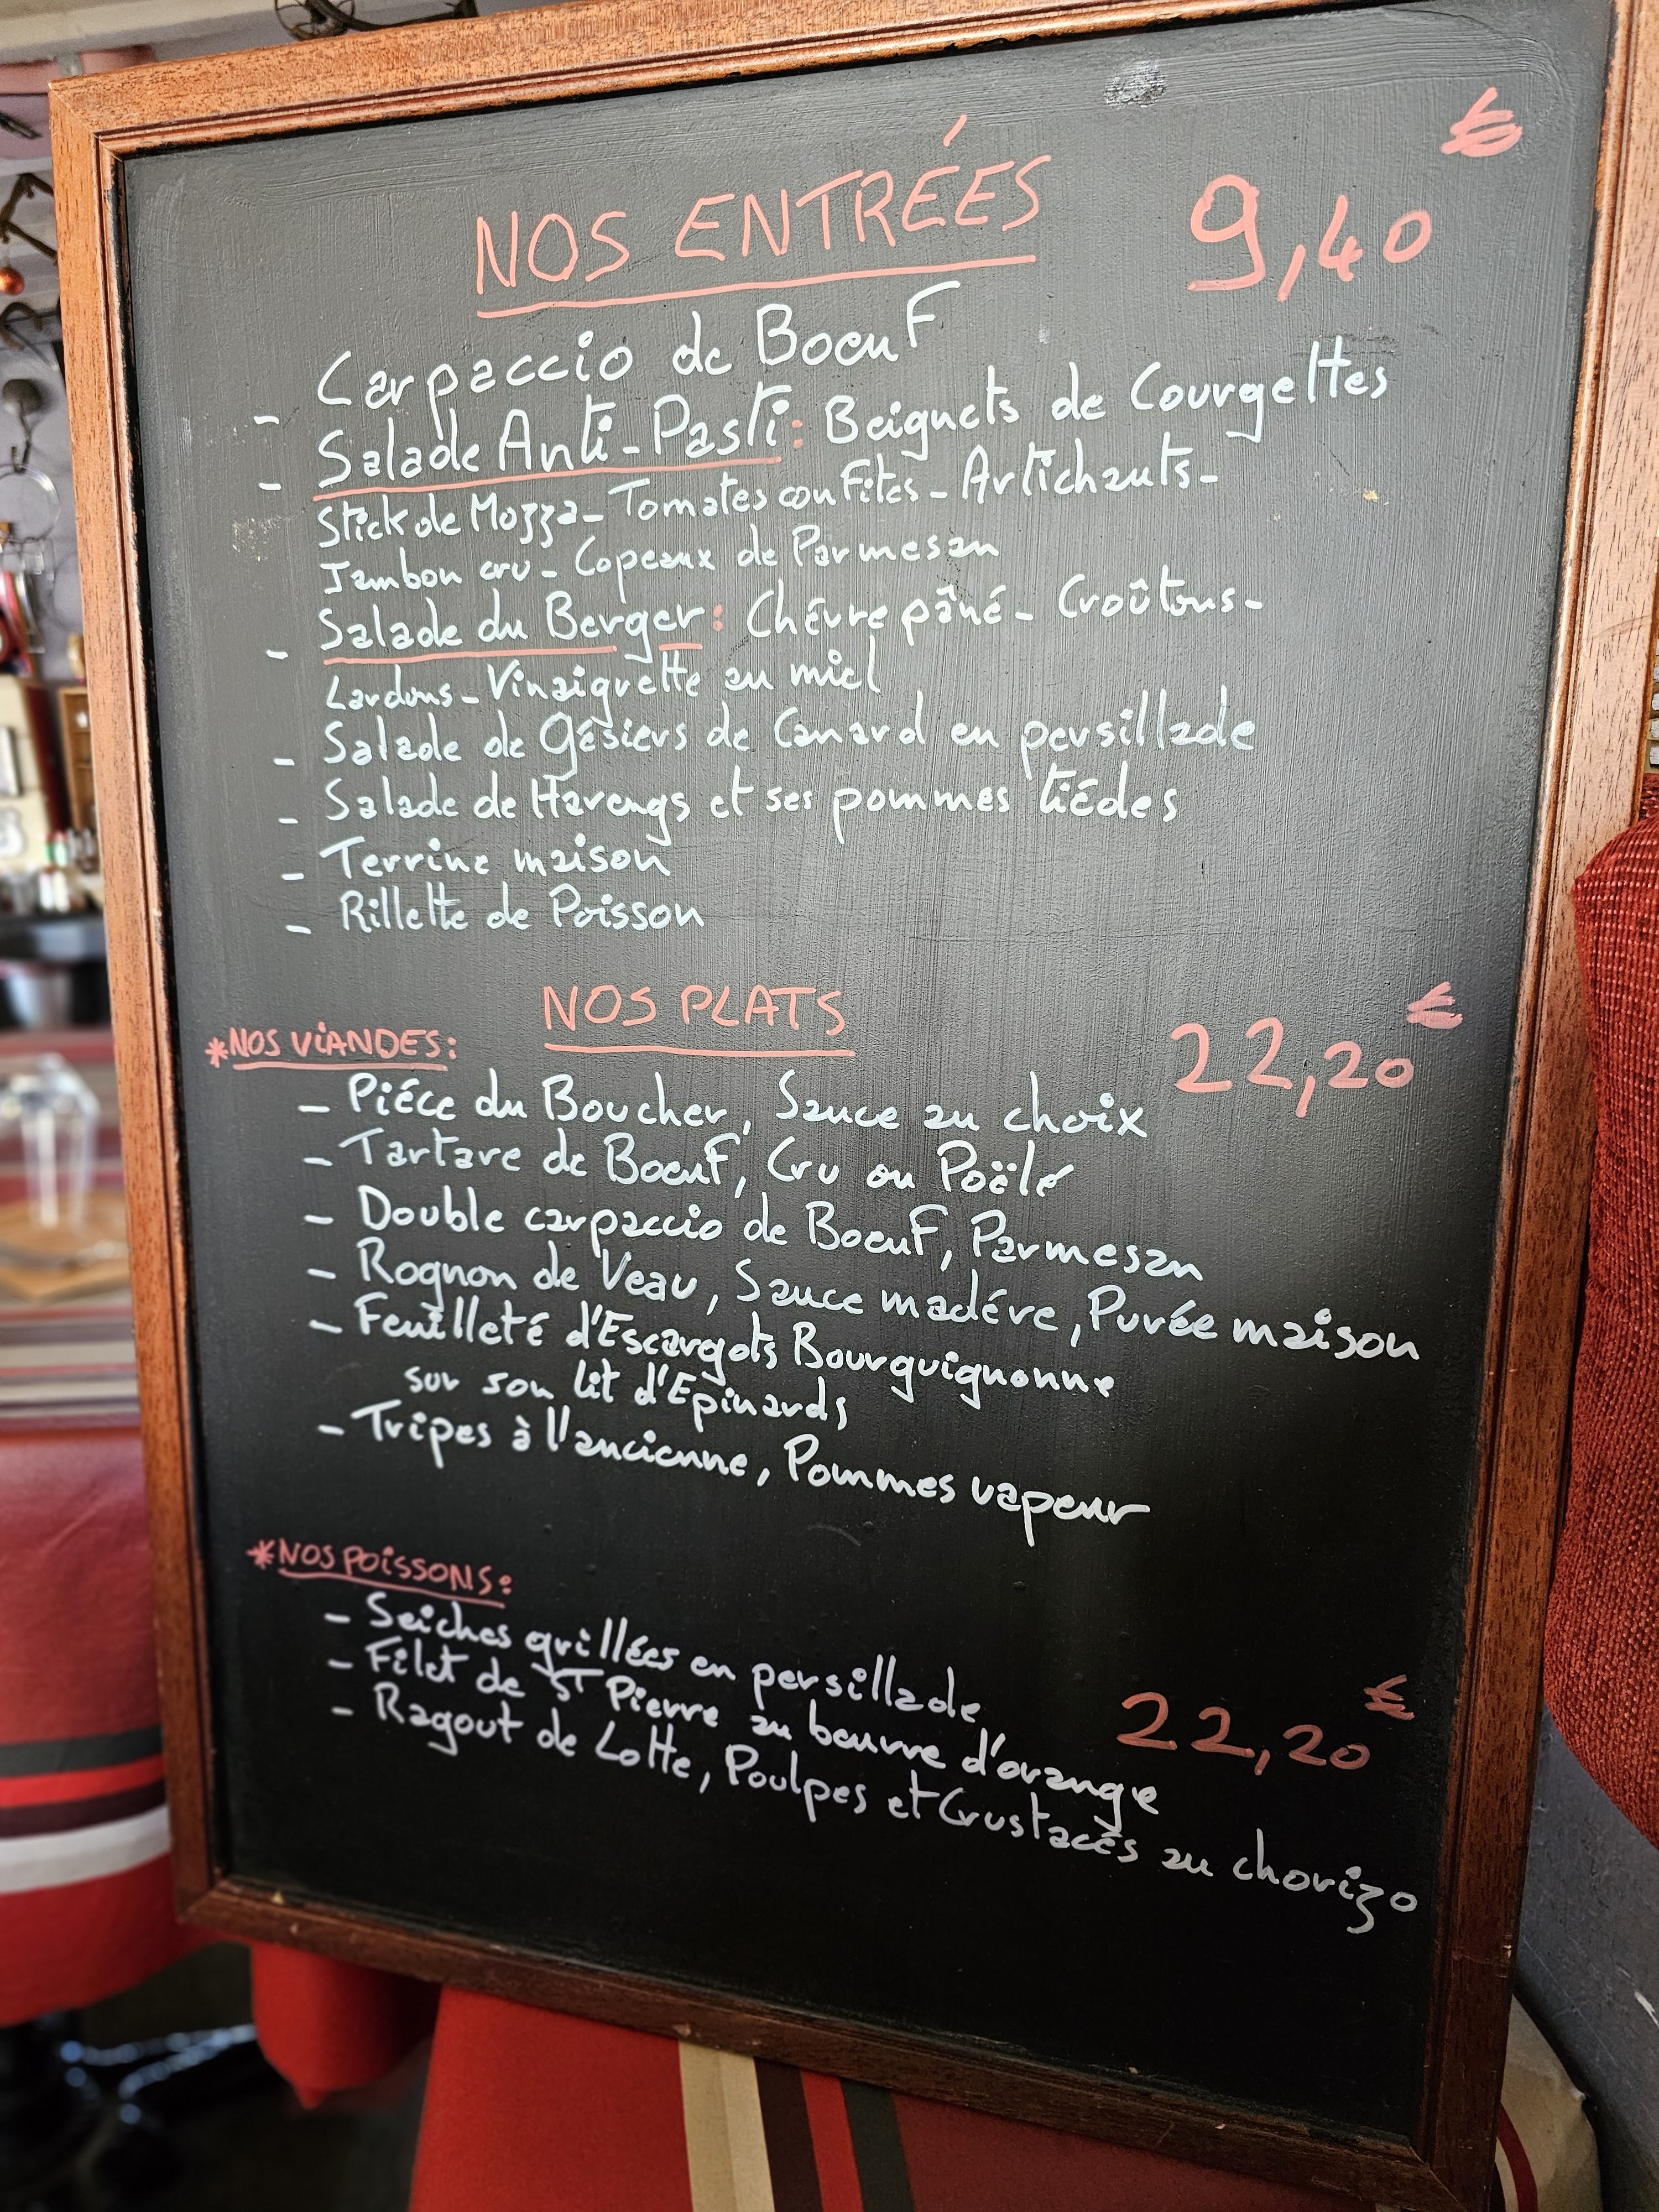 NOS ENTRÉES 9,40 €
- Carpaccio de Boeuf
- Salade Anti-Pasti: Beignets de Courgettes
Stick de Mozza - Tomates confites - Artichauts -
Jambon cru - Copeaux de Parmesan
- Salade du Berger: Chévre pâné - Croûtons -
Lardons - Vinaigrette au miel
- Salade de Gésiers de Canard en persillade
- Salade de Harengs et ses pommes tiédes
- Terrine maison
- Rillette de Poisson
NOS PLATS 22,20 €
*NOS VIANDES:
- Piéce du Boucher, Sauce au choix
- Tartare de Boeuf, Cru ou Poëlé
- Double carpaccio de Boeuf, Parmesan
- Rognon de Veau, Sauce madére, Purée maison
- Feuilleté d'Escargots Bourguignonne
sur son lit d'Epinards
- Tripes à l'ancienne, Pommes vapeur
*NOS POISSONS:
- Seiches grillées en persillade
- Filet de ST Pierre au beurre d'orange 22,20 €
- Ragout de Lotte, Poulpes et Crustacés au chorizo